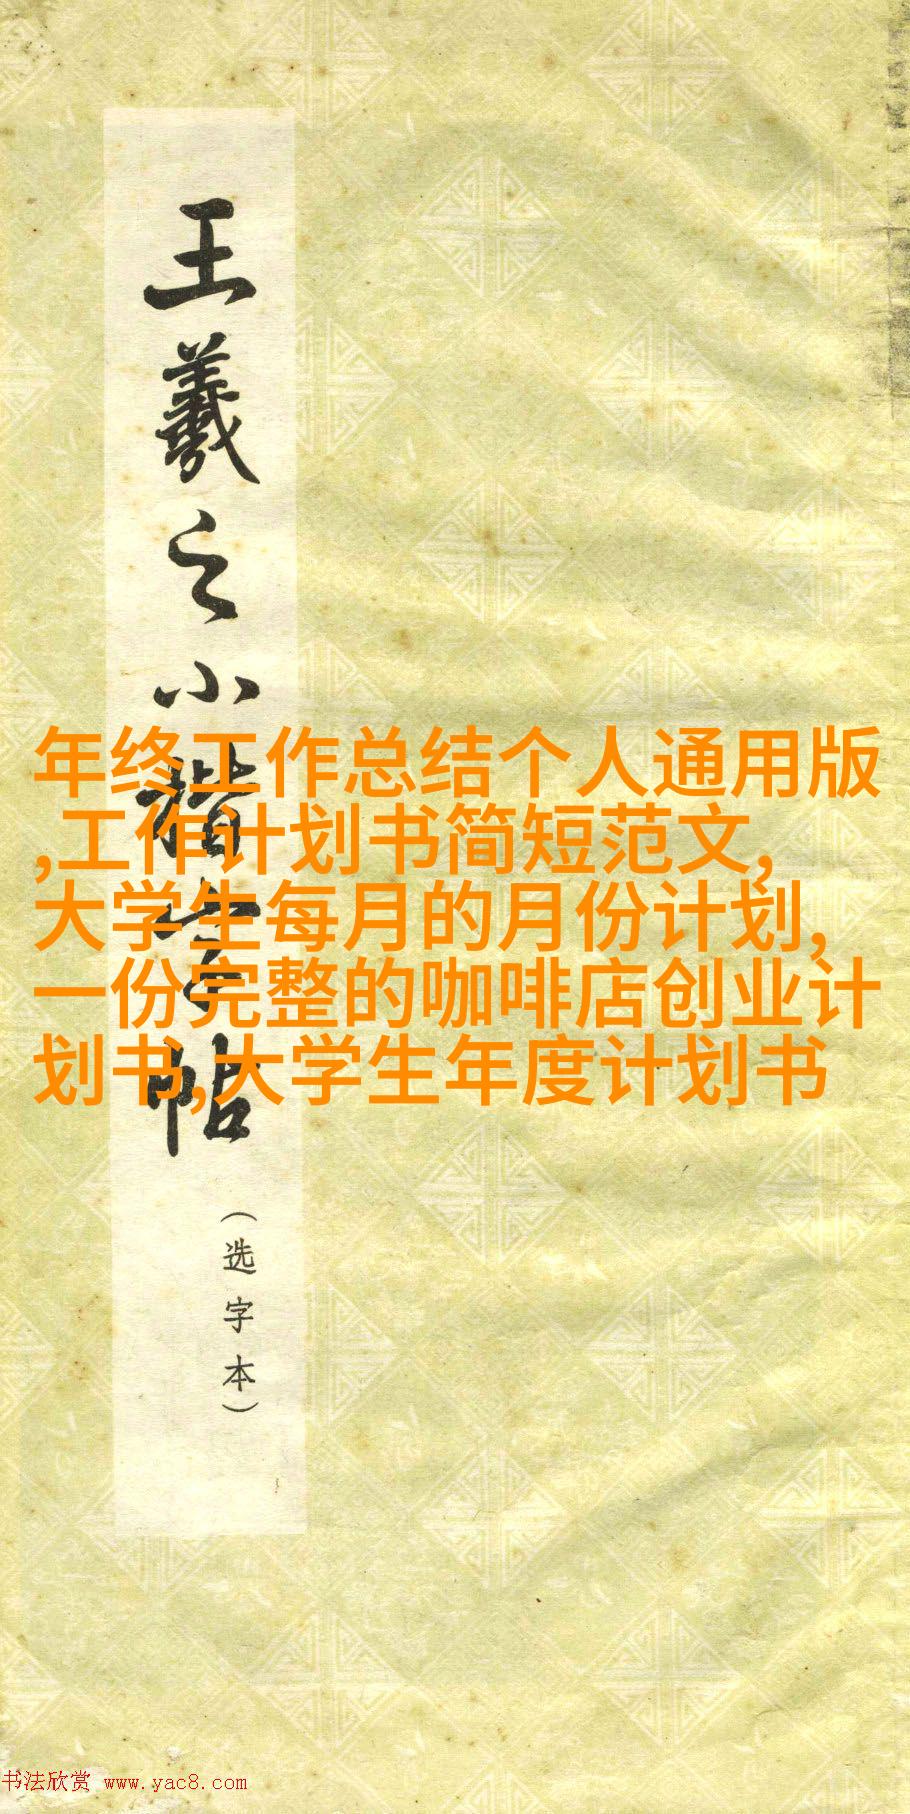 王羲之小楷字帖
（选字本）
年终工作总结个人通用版
,工作计划书简短范文,
大学生每月的月份计划,
一份完整的咖啡店创业计
划书,大学生年度计划书
书法欣赏 www.yac8.com